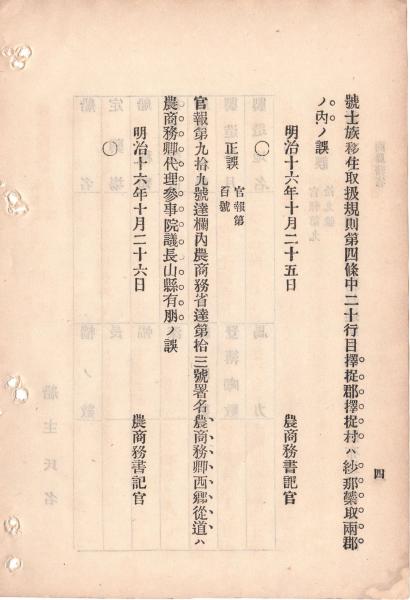 號士族移住取扱規則第四條中二十行目擇捉郡擇捉村ハ紗那蘂取兩郡
ノ內ノ誤
明治十六年十月二十五日
農商務書記官
○
正誤 官報第百號
官報第九拾九號達欄內農商務省達第拾三號署名農商務卿西鄉從道ハ
農商務卿代理參事院議長山縣有朋ノ誤
明治十六年十月二十六日
農商務書記官
○
四